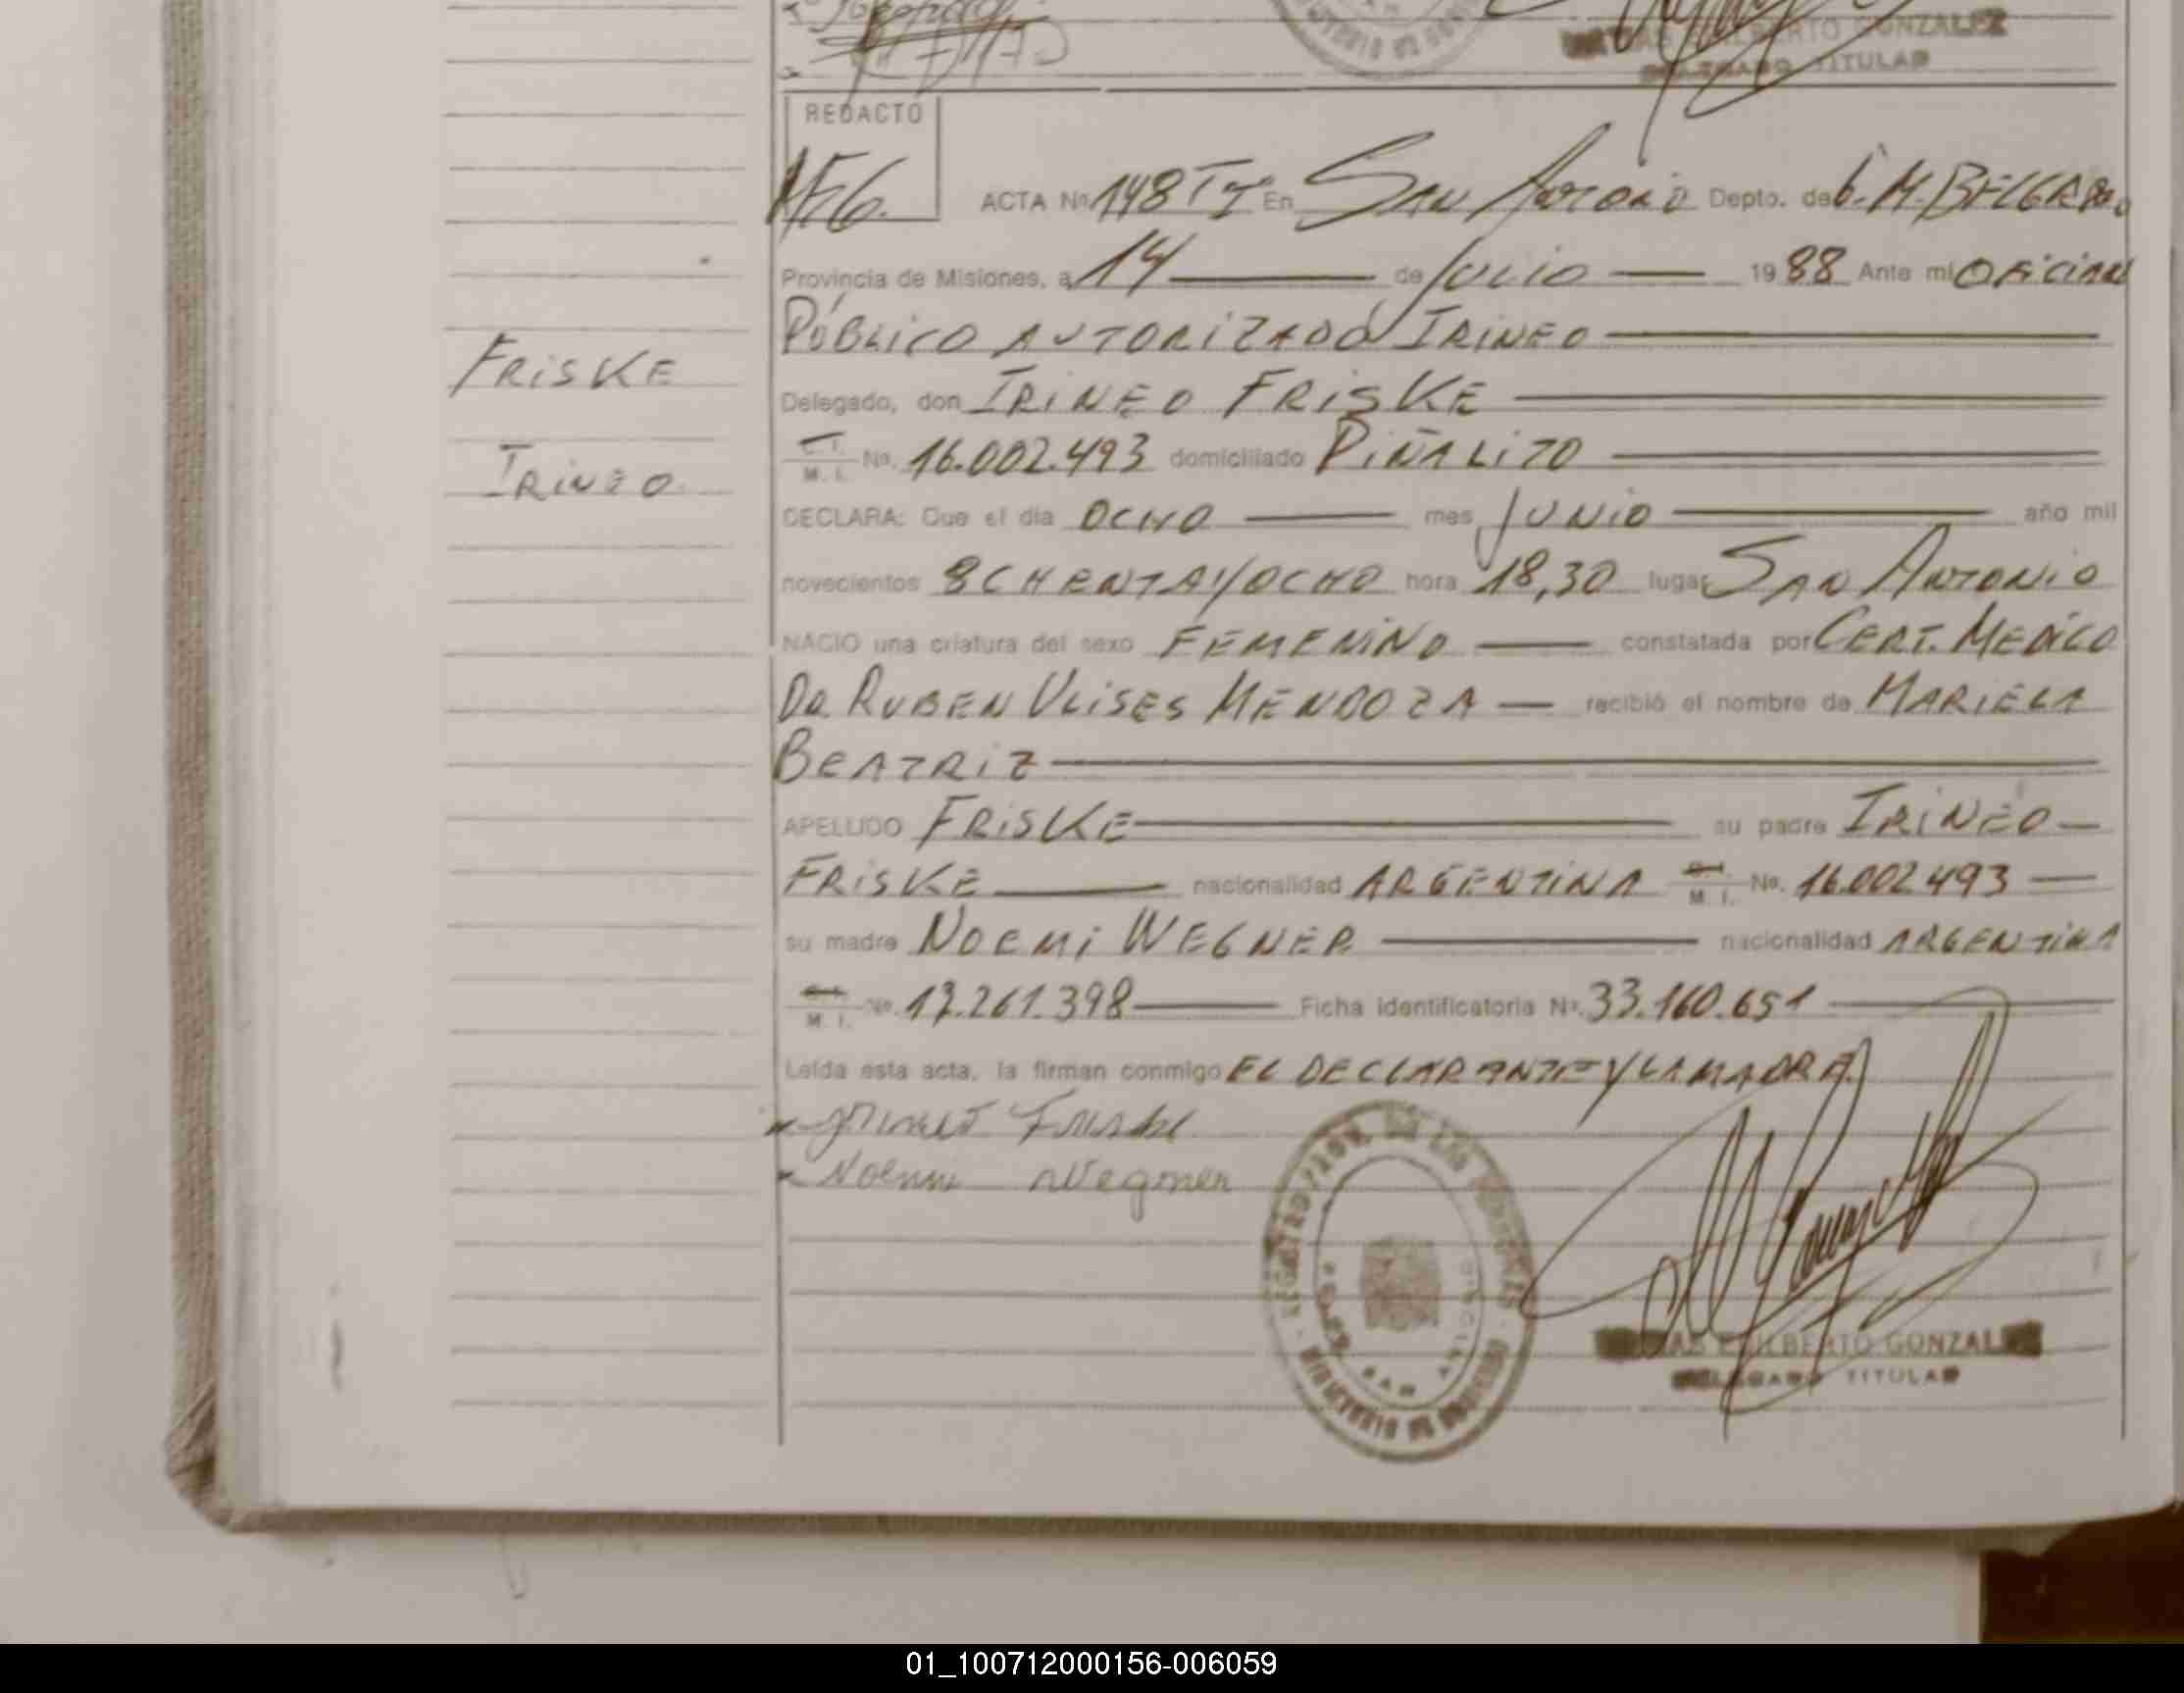 GONZALEZ
TITULAR
REDACTO
ACTA No. 148 T I En SAN ANTONIO Depto. de G. M. BELGRANO
Provincia de Misiones, a 14 de JULIO 1988 Ante mi OFICIAL
PÚBLICO AUTORIZADO IRINEO
Delegado, don IRINEO FRISKE
FRISKE
C. I. M. I. No. 16.002.493 domiciliado PIÑALITO
IRINEO
DECLARA: Que el día OCHO mes JUNIO año mil
novecientos OCHENTA Y OCHO hora 18,30 lugar SAN ANTONIO
NACIO una criatura del sexo FEMENINO constatada por CERT. MEDICO
DR RUBEN ULISES MENDOZA recibió el nombre de MARIELA
BEATRIZ
APELLIDO FRISKE su padre IRINEO
FRISKE nacionalidad ARGENTINA C. I. M. I. No. 16.002.493
su madre NOEMI WEGNER nacionalidad ARGENTINA
M. I. No. 17.261.398 Ficha identificatoria No. 33.160.651
Leída esta acta, la firman conmigo EL DECLARANTE Y LA MADRE.
Irineo Friske
Noemi Wegner
GILBERTO GONZALEZ
DELEGADO TITULAR
01_100712000156-006059